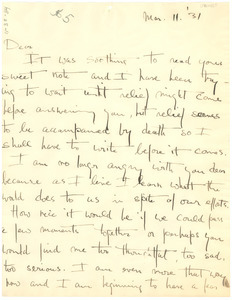 Mar. 11. '31
Dear
It was soothing to read your
sweet note and I have been try-
ing to wait until relief might come
before answering you, but relief seems
to be accompanied by death so I
shall have to write before it comes.
I am no longer angry with you dear
because as I live I learn what the
world does to us in spite of our efforts.
How nice it would be if we could pass
a few moments together or perhaps you
would find me too thoughtful, too sad,
too serious. I am even more that way
now and I am beginning to have a fear